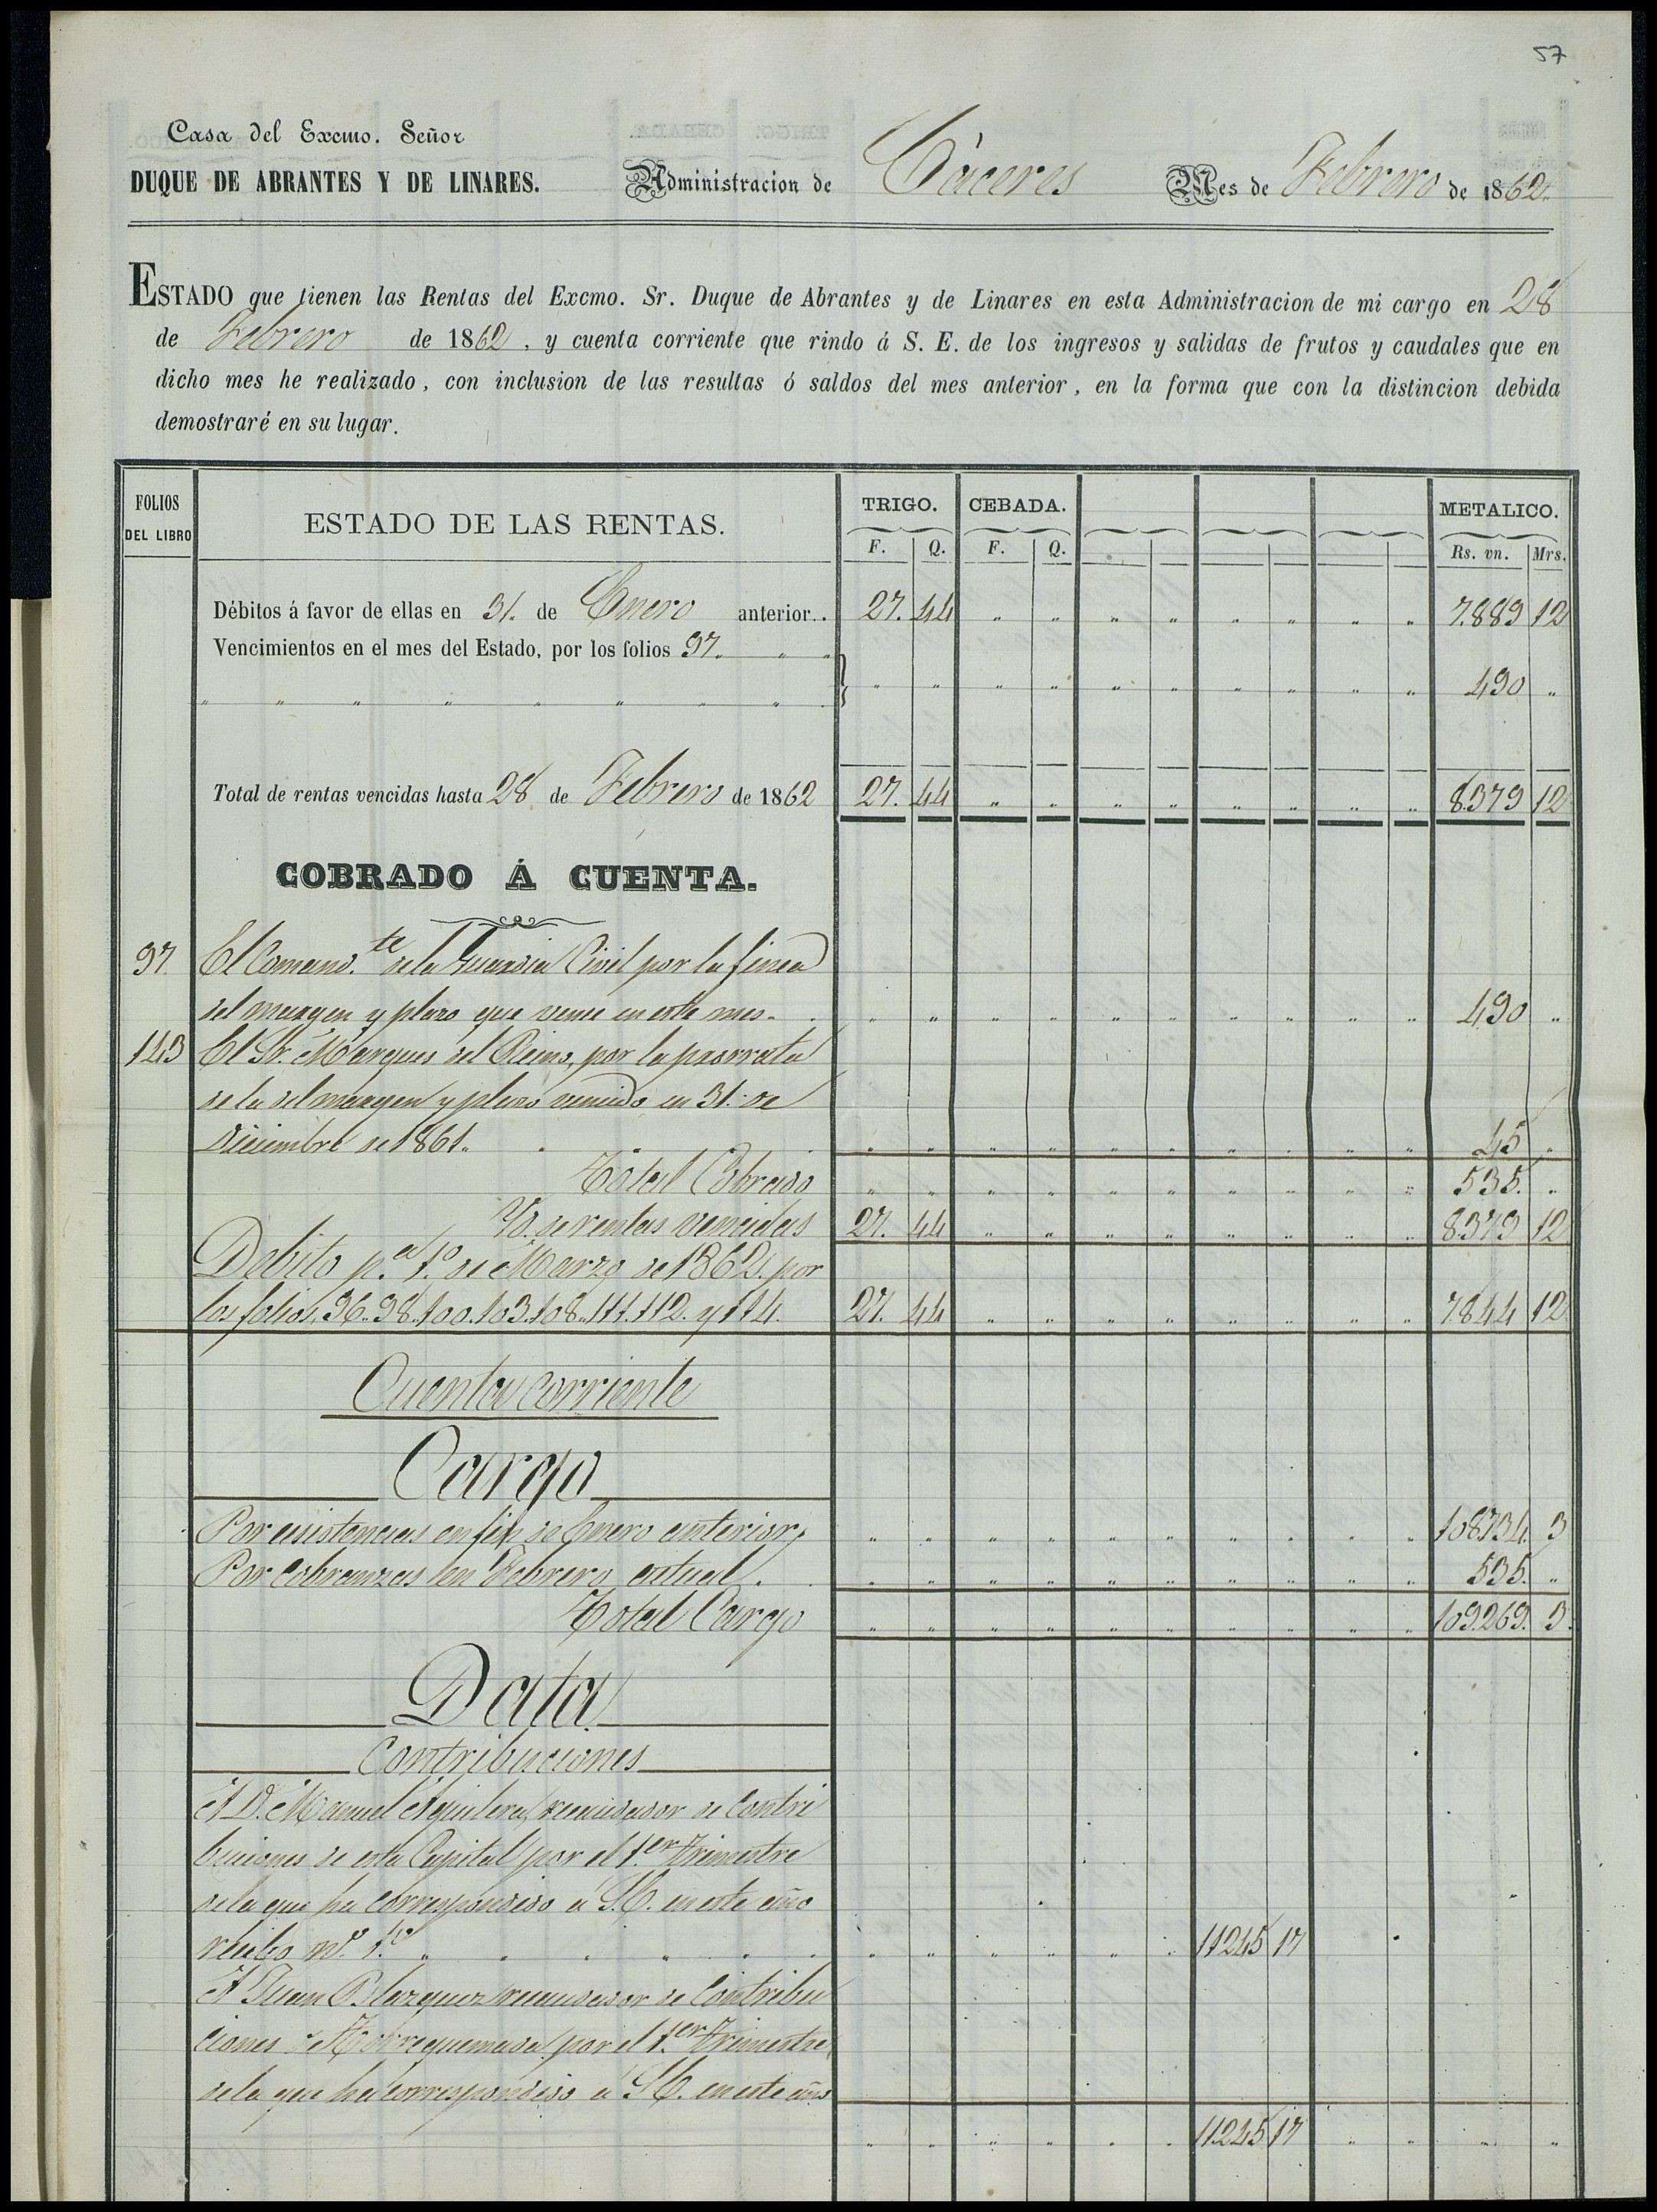 57
Casa del Excmo. Señor
DUQUE DE ABRANTES Y DE LINARES. Administracion de Cáceres Mes de Febrero de 1862.
ESTADO que tienen las Rentas del Excmo. Sr. Duque de Abrantes y de Linares en esta Administracion de mi cargo en 28
de Febrero de 1862, y cuenta corriente que rindo á S. E. de los ingresos y salidas de frutos y caudales que en
dicho mes he realizado, con inclusion de las resultas ó saldos del mes anterior, en la forma que con la distincion debida
demostraré en su lugar.
FOLIOS DEL LIBRO ESTADO DE LAS RENTAS. TRIGO. CEBADA. METALICO.
F. Q. F. Q. Rs. vn. Mrs.
Débitos á favor de ellas en 31. de Enero anterior.. 27. 44 " " " " " " " " 7.889 12
Vencimientos en el mes del Estado, por los folios 97. " "
" " " " " " " " " " " " " " " " " " 490 "
Total de rentas vencidas hasta 28 de Febrero de 1862 27. 44 " " " " " " " " 8.379 12
COBRADO Á CUENTA.
97. El Comand.te de la Guardia Civil por la finca
del margen y plazo que vence en este mes. " " " " " " " " " " 490 "
143 El Sr. Marques del Reino, por la prorrata
de la del margen y plazo vencido en 31. de
Diciembre de 1861. " " " " " " " " " " 45 "
Total Cobrado " " " " " " " " " " 535. "
Yd. de rentas vencidas 27. 44 " " " " " " " " 8.379 12
Debito p.a 1.o de Marzo de 1862. por
los folios, 96. 98. 100. 103. 108. 111. 112. y 114. 27. 44 " " " " " " " " 7.844 12
Cuenta corriente
Cargo
Por esistencias en fin de Enero anterior. " " " " " " " " " " 108.734. 3
Por cobranzas en Febrero actual. " " " " " " " " " " 535. "
Total Cargo " " " " " " " " " " 109.269. 3.
Data
Contribuciones
A D. Manuel Aguilera, recaudador de Contri
buciones de esta Capital por el 1.er Trimestre
de la que ha correspondido a S.E. en este año
recibo n.o 1.o " " " " " " 11.245 17
A Juan Blazquez recaudador de Contribu
ciones de Torrequemada, por el 1.er Trimestre
de la que ha correspondido a S.E. en este año
" " " " " " 11.245 17 " " " "